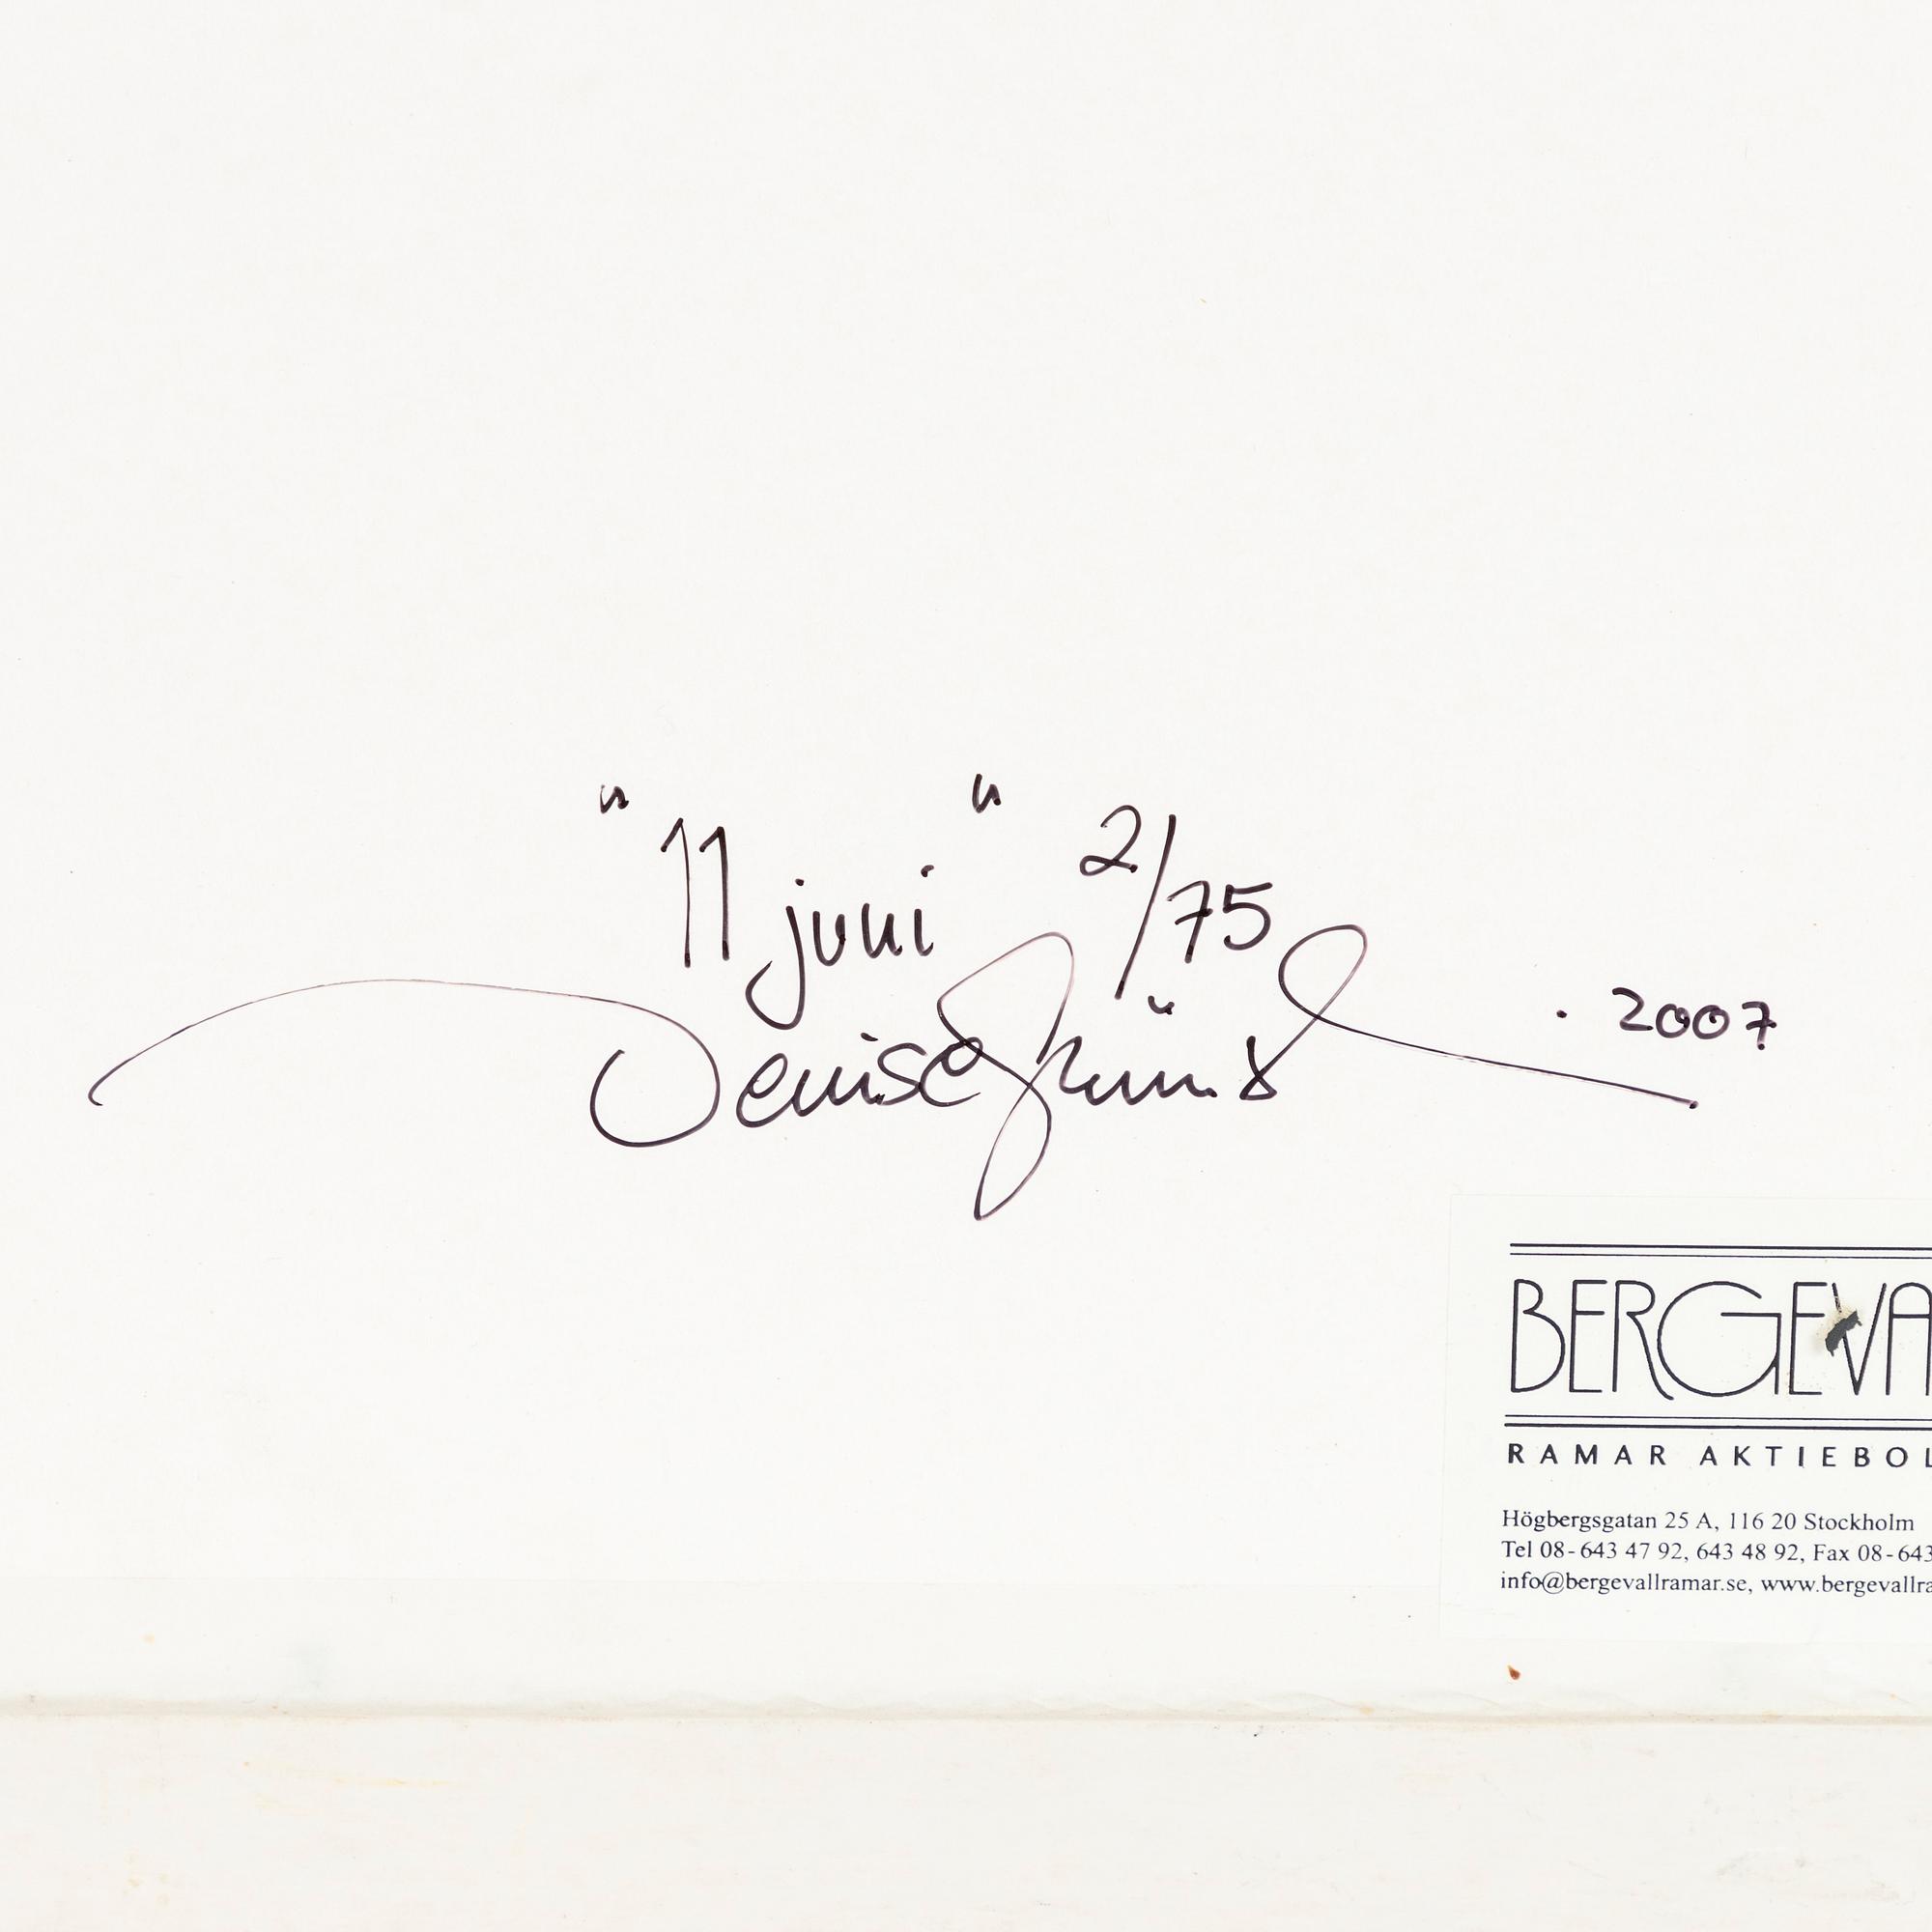 "11 juni" 2/75
Denise Grünstein . 2007
BERGEVA
RAMAR AKTIEBOL
Högbergsgatan 25 A, 116 20 Stockholm
Tel 08-643 47 92, 643 48 92, Fax 08-643
info@bergevallramar.se, www.bergevallra